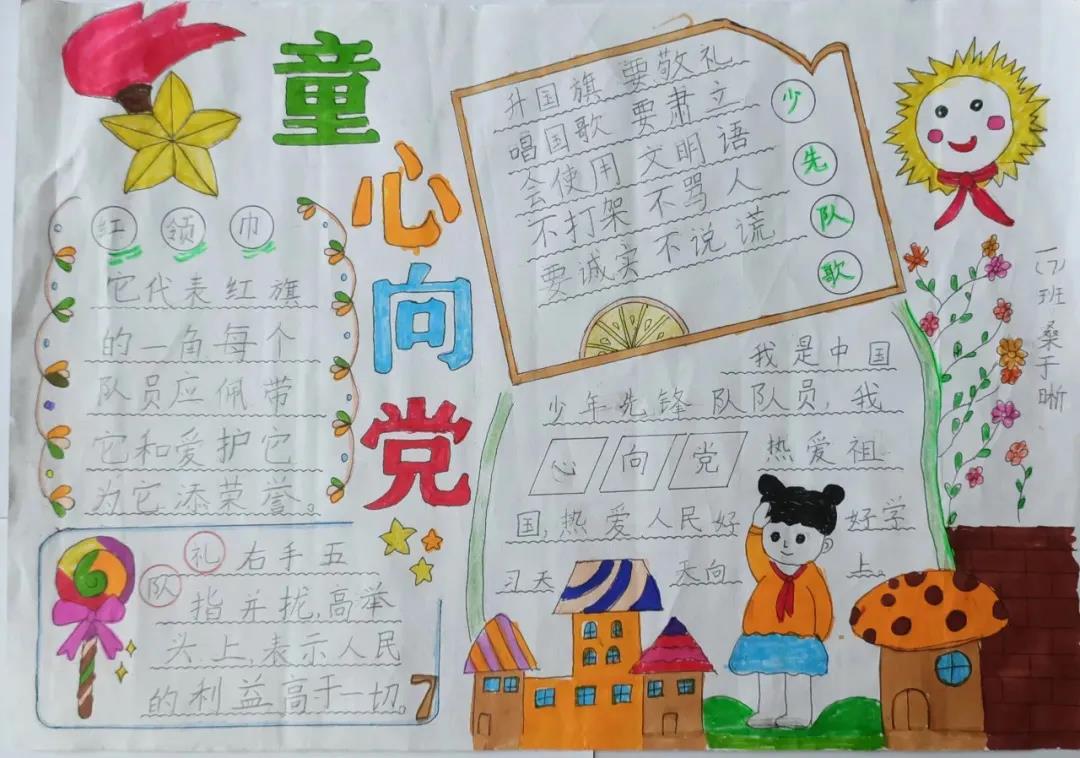 童心向党
红领巾
它代表红旗
的一角每个
队员应佩带
它和爱护它
为它添荣誉。
队礼右手五
指并拢,高举
头上,表示人民
的利益高于一切。
少先队歌
升国旗 要敬礼
唱国歌 要肃立
会使用 文明语
不打架 不骂人
要诚实 不说谎
我是中国
少年先锋队队员,我
心向党 热爱祖
国,热爱人民好 好学
习天 天向 上。
一(7)班 桑于晰